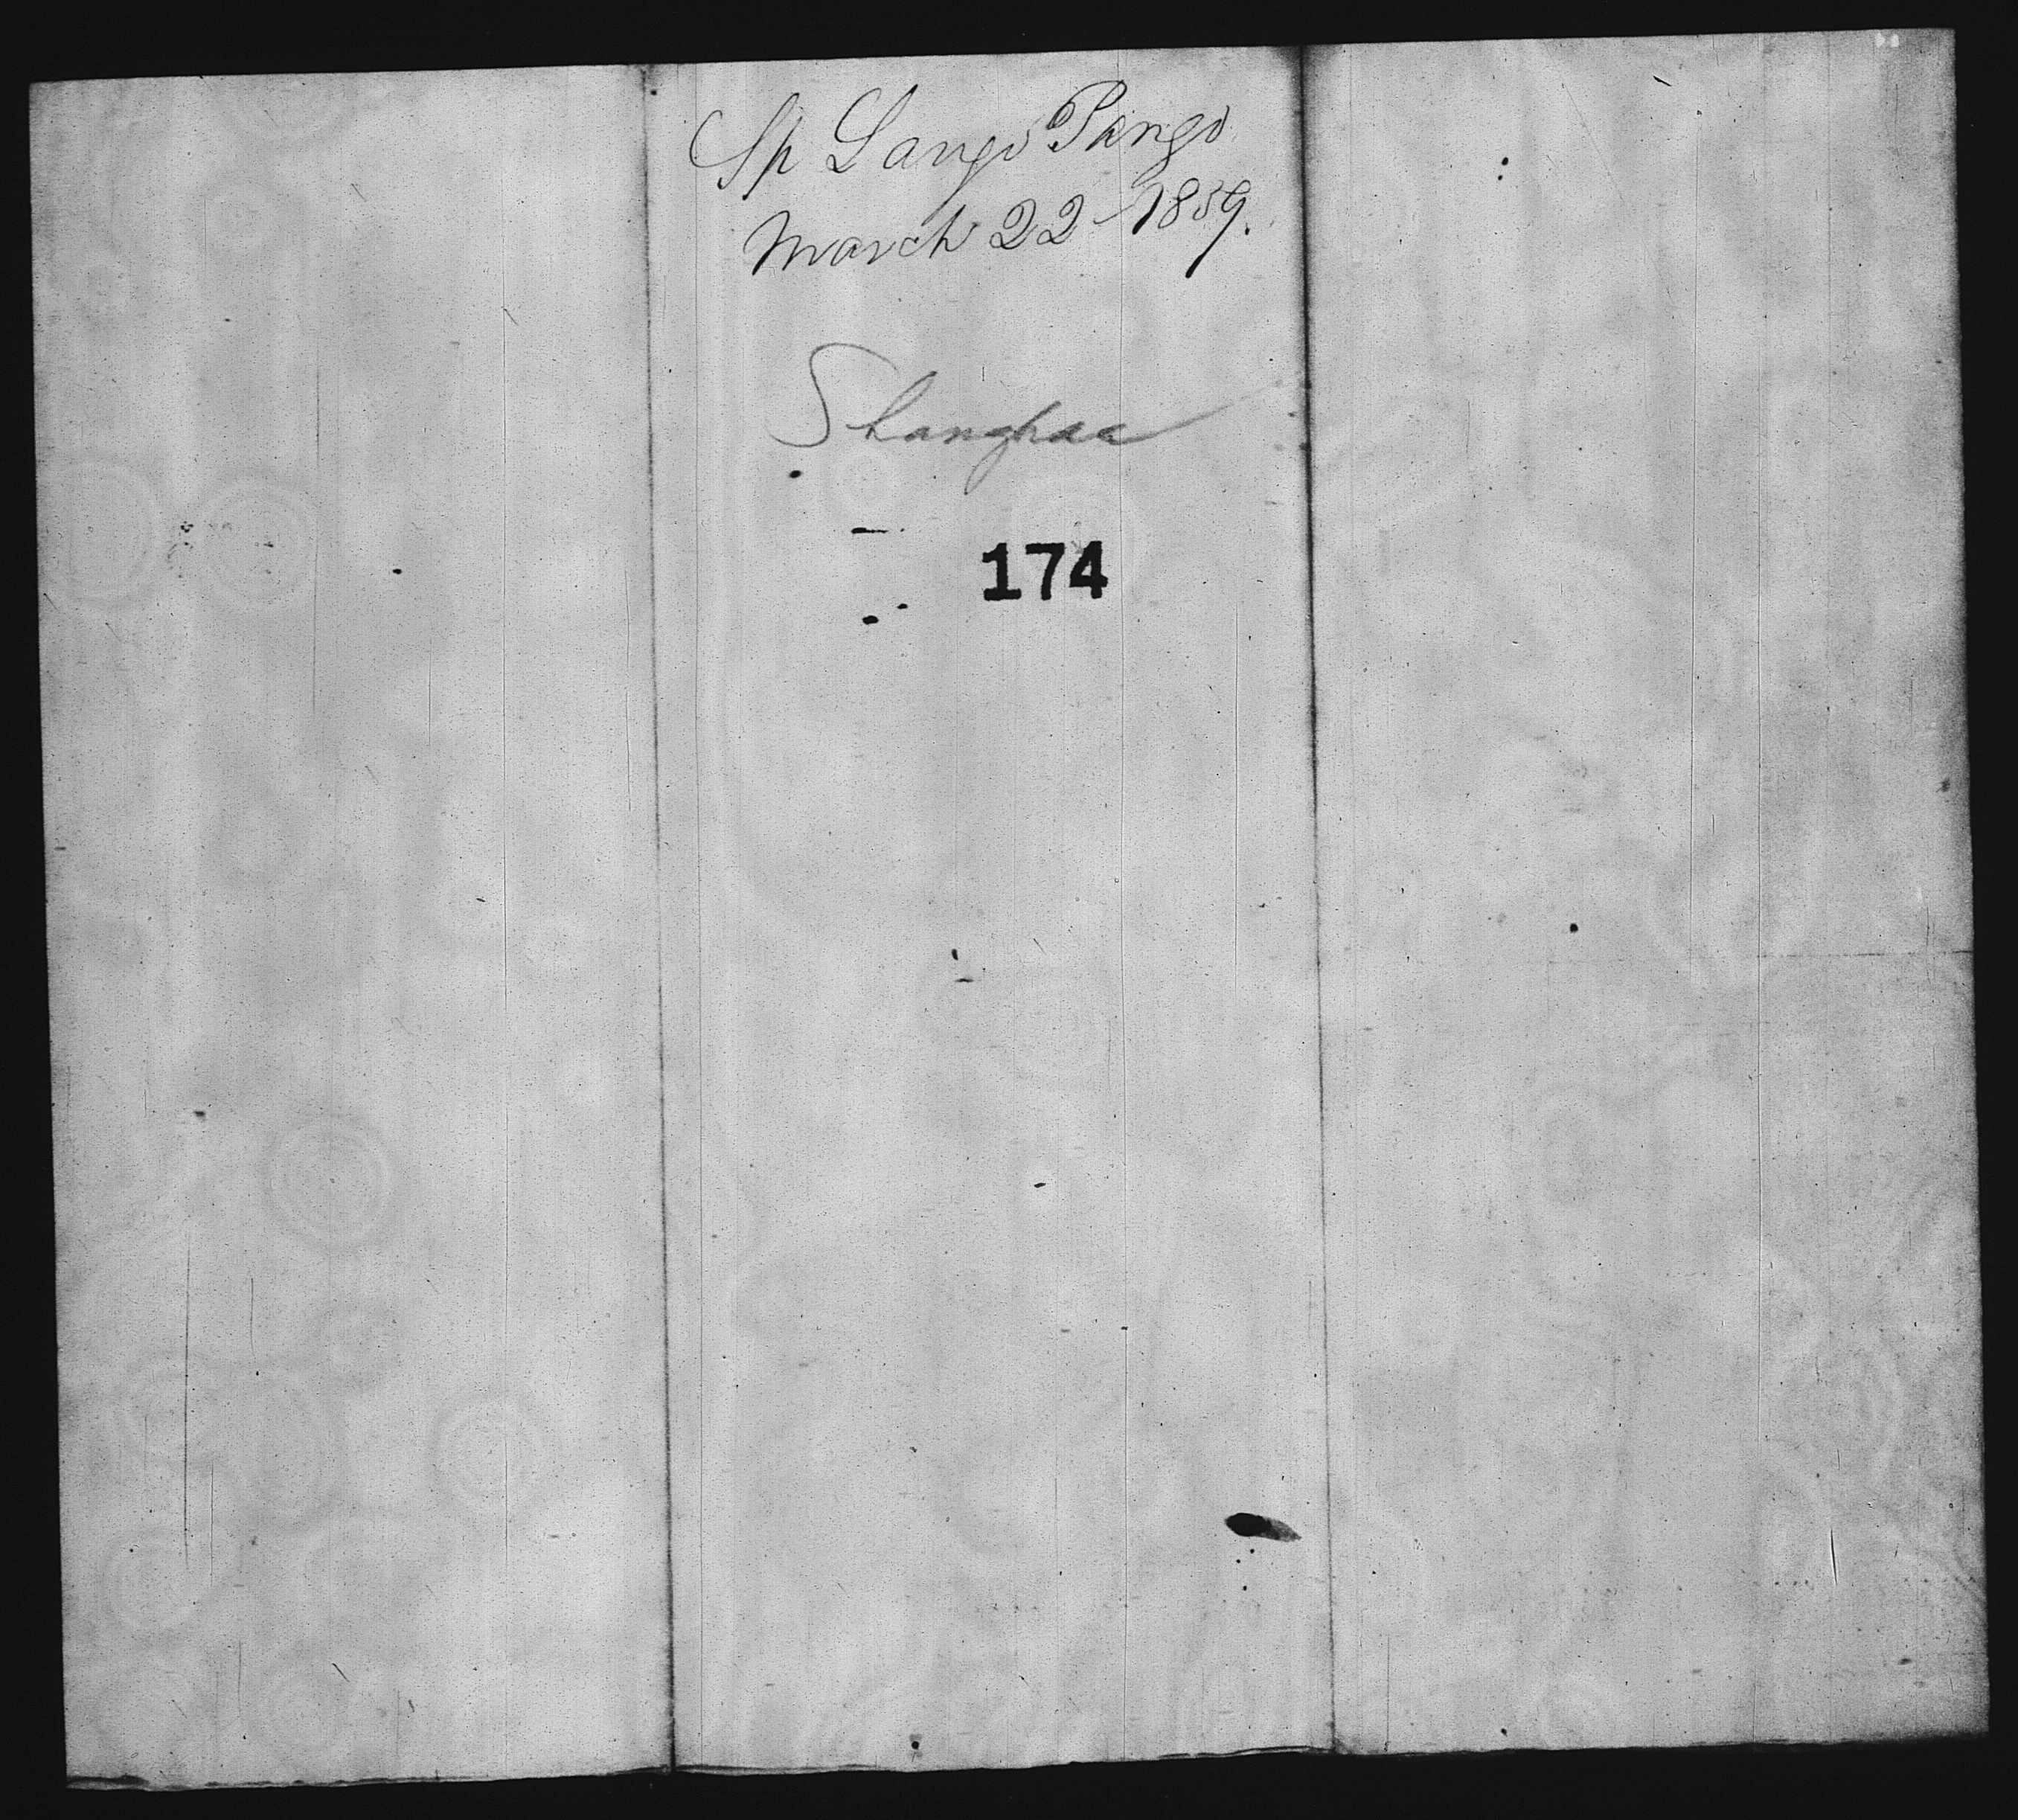 Sp Langi Pango
March 22 1859.
Shanghae
174